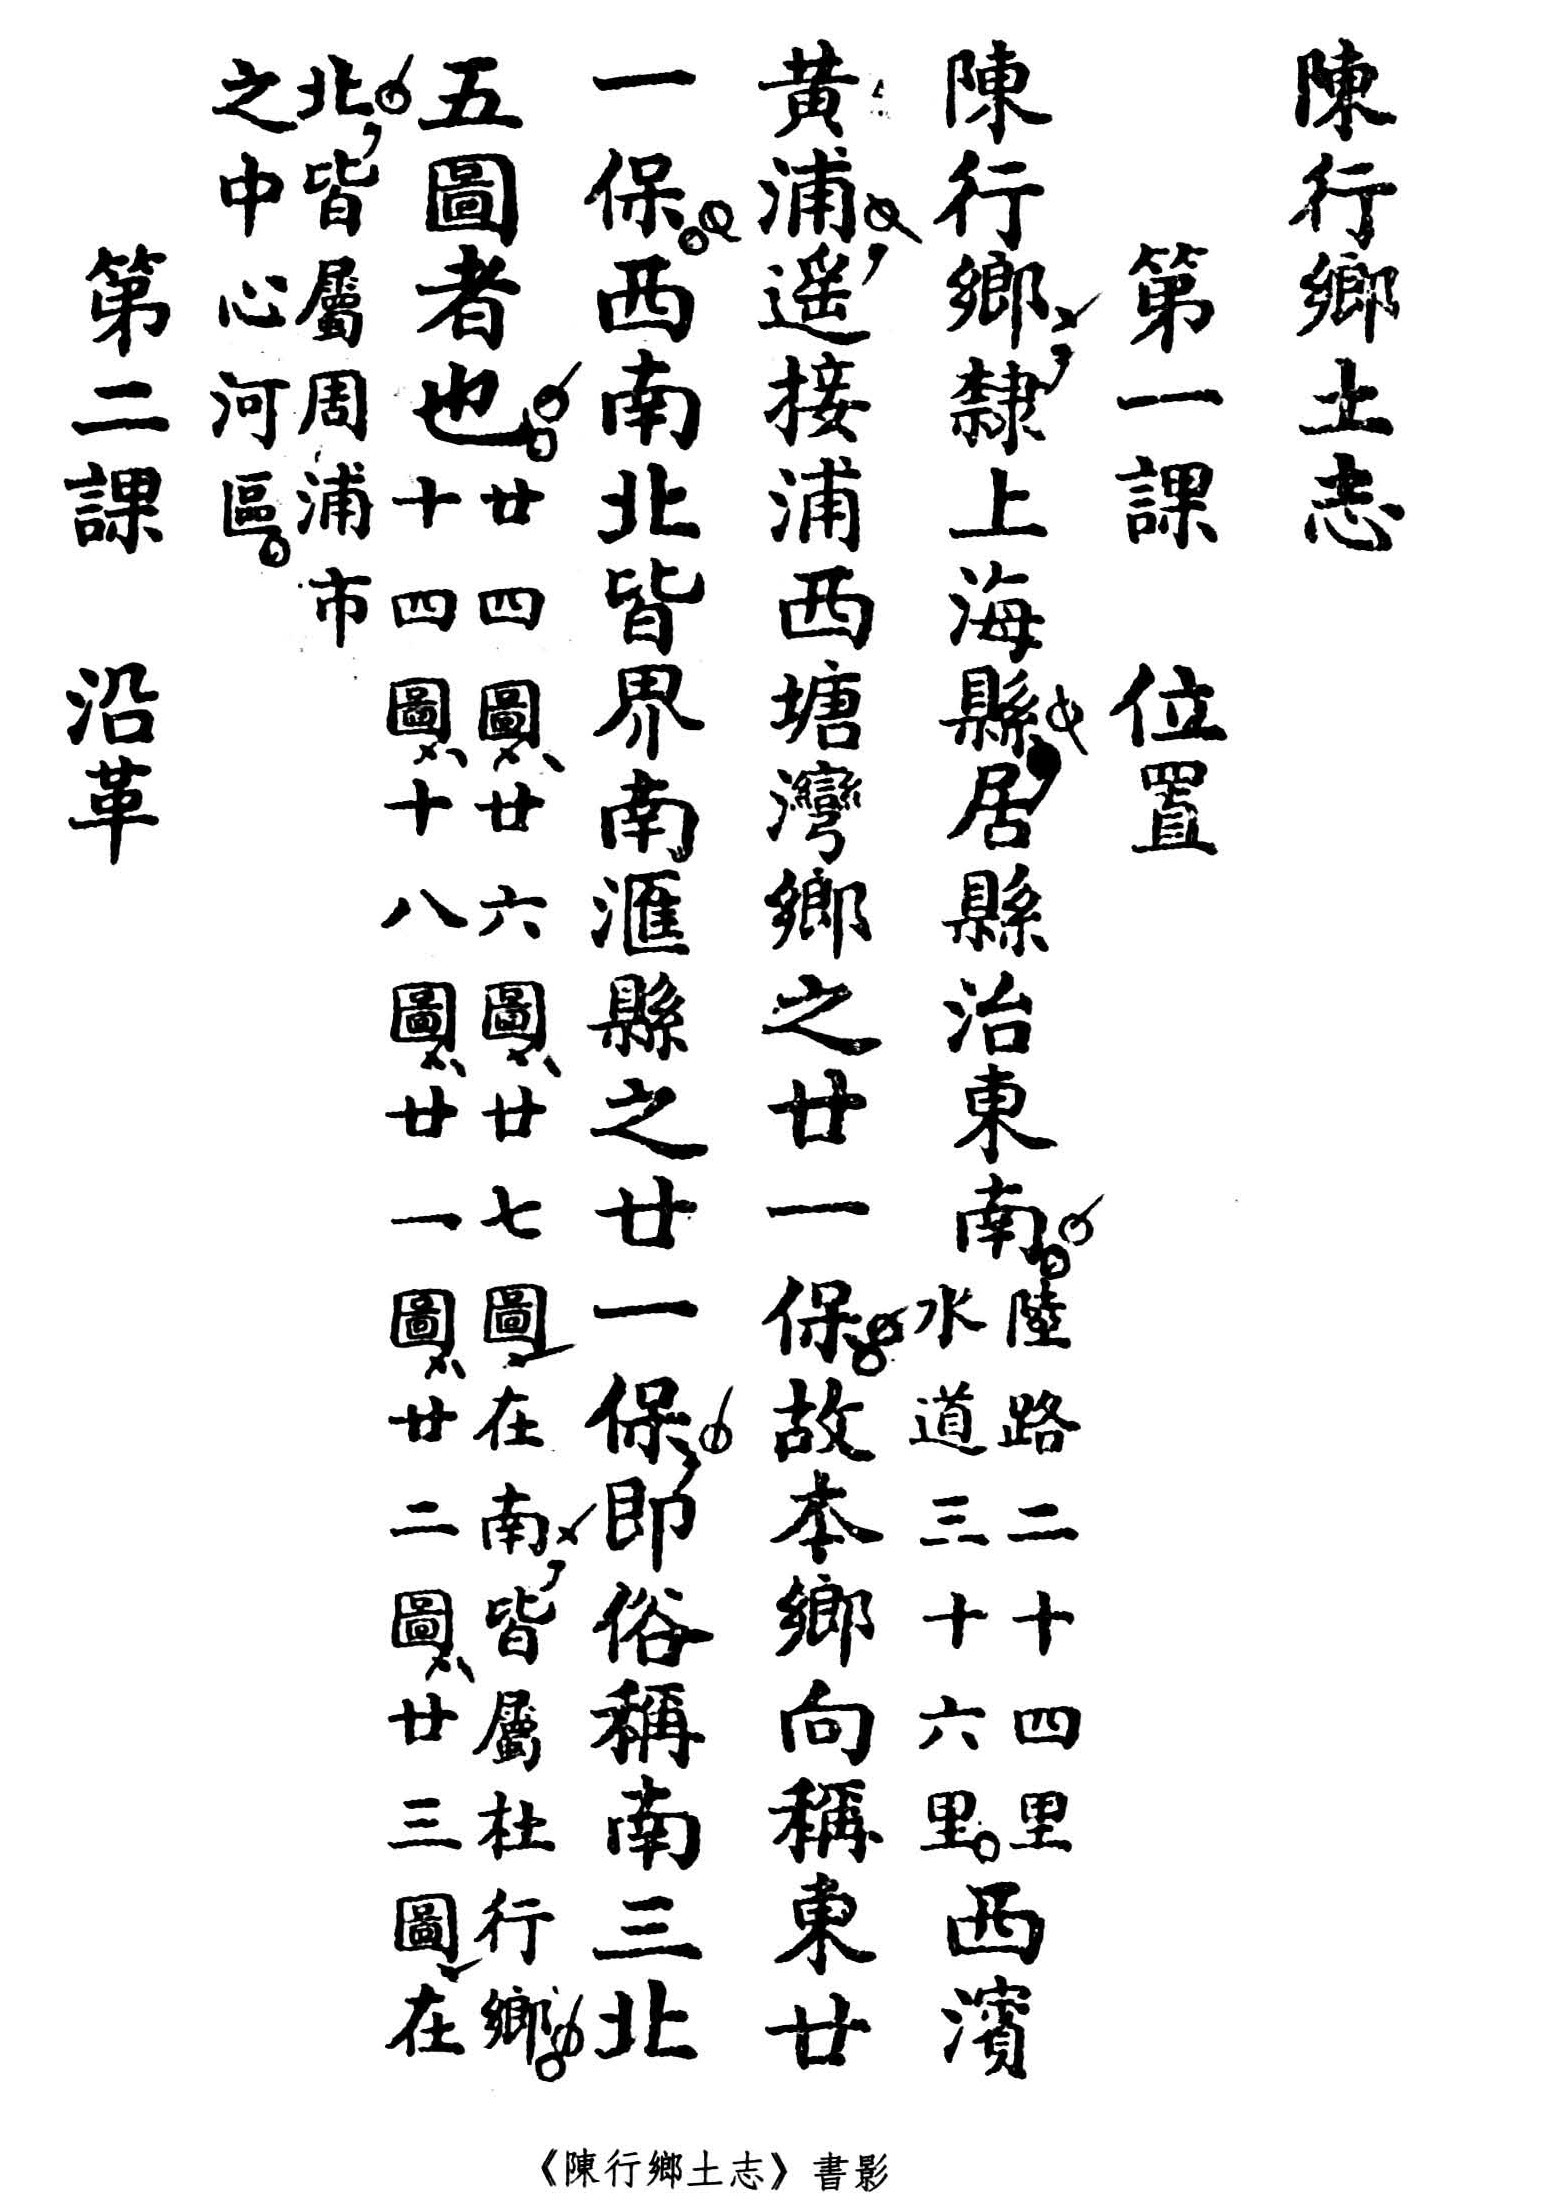 陳行鄉土志
第一課　位置
陳行鄉，隸上海縣，居縣治東南。陸路二十四里
水道三十六里。西濱
黃浦，遥接浦西塘灣鄉之廿一保。故本鄉向稱東廿
一保。西南北皆界南滙縣之廿一保，即俗稱南三北
五圖者也。廿四圖、廿六圖、廿七圖在南，皆屬杜行鄉。
十四圖、十八圖、廿一圖、廿二圖、廿三圖在
北，皆屬周浦市
之中心河區。
第二課　沿革
《陳行鄉土志》書影